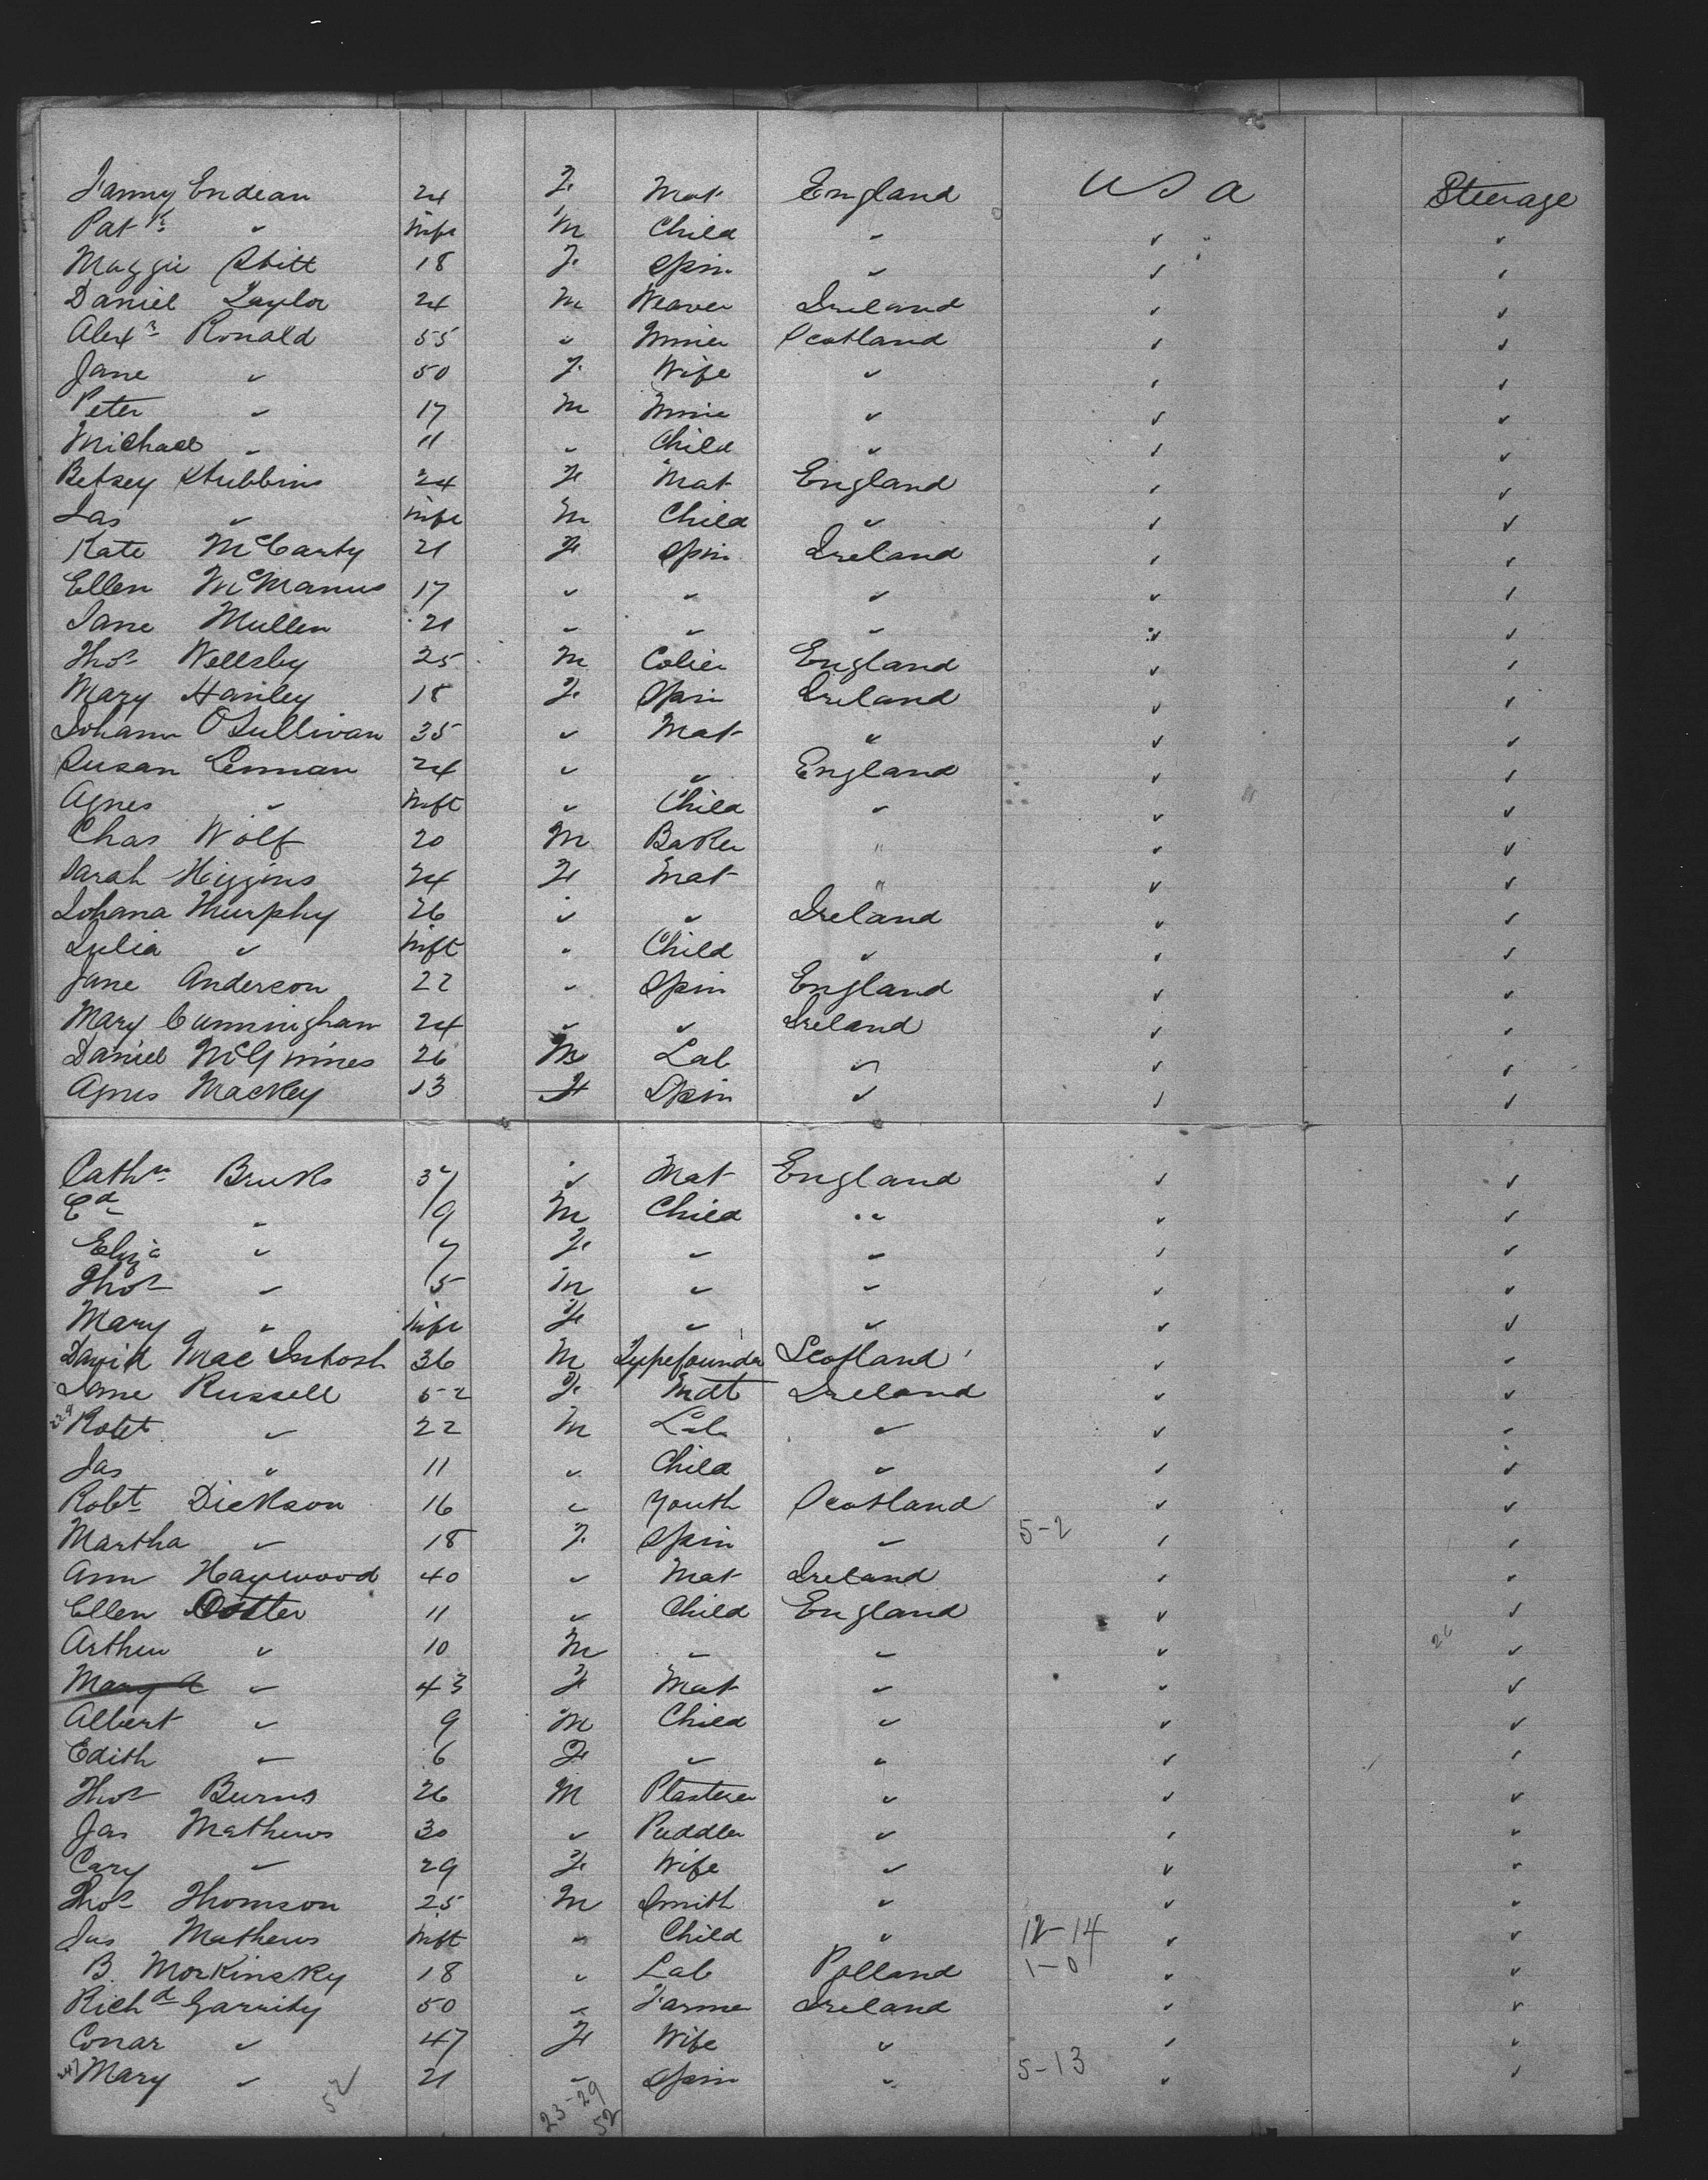 Fanny Endean 24 F Mat England U S A Steerage
Patk " Infe M Child " " "
Maggie Stitt 18 F Spin " " "
Daniel Taylor 24 M Weaver Ireland " "
Alexr Ronald 55 " Miner Scotland " "
Jane " 50 F Wife " " "
Peter " 17 M Mine " " "
Michael " 11 " Child " " "
Betsey Stubbins 24 F Mat England " "
Jas " Infe M Child " " "
Kate McCarty 21 F Spin Ireland " "
Ellen McManus 17 " " " " "
Jane Mullen 21 " " " " "
Thos Wellsby 25 M Colier England " "
Mary Hanley 18 F Spin Ireland " "
Johann O'Sullivan 35 " Mat " " "
Susan Lennan 24 " " England " "
Agnes " Inft " Child " " "
Chas Wolf 20 M Baker " " "
Sarah Higgins 24 F Mat " " "
Johana Murphy 26 " " Ireland " "
Julia " Inft " Child " " "
Jane Anderson 22 " Spin England " "
Mary Cunningham 24 " " Ireland " "
Daniel McGinnes 26 M Lab " " "
Agnes Mackey 13 F Spin " " "
Cathn 37 " Mat England " "
Ed " 9 M Child " " "
Eliza " 7 F " " " "
Thos " 5 M " " " "
Mary " Infe F " " " "
David MacIntosh 36 M Typefounder Scotland " "
Jane Russell 52 F Mat Ireland " "
Robt " 22 M Lab " " "
Jas " 11 " Child " " "
Robt Dickson 16 " Youth Scotland " "
Martha " 18 F Spin " 5-2 " "
Ann Haywood 40 " Mat Ireland " "
Ellen 11 " Child England " "
Arthur " 10 M " " " 26 "
Mary A " 43 F Mat " " "
Albert " 9 M Child " " "
Edith " 6 F " " " "
Thos Burns 26 M Plasterer " " "
Jas Mathews 30 " Puddler " " "
Cary " 29 F Wife " " "
Thos Thomson 25 M Smith " " "
Jas Mathews Inft " Child " 12-14 " "
B. Morkinsky 18 " Lab Polland 1-0 " "
Richd Garrity 50 " Farmer Ireland " "
Conar " 47 F Wife " " "
Mary " 21 " Spin " 5-13 " "
52 23-29
52